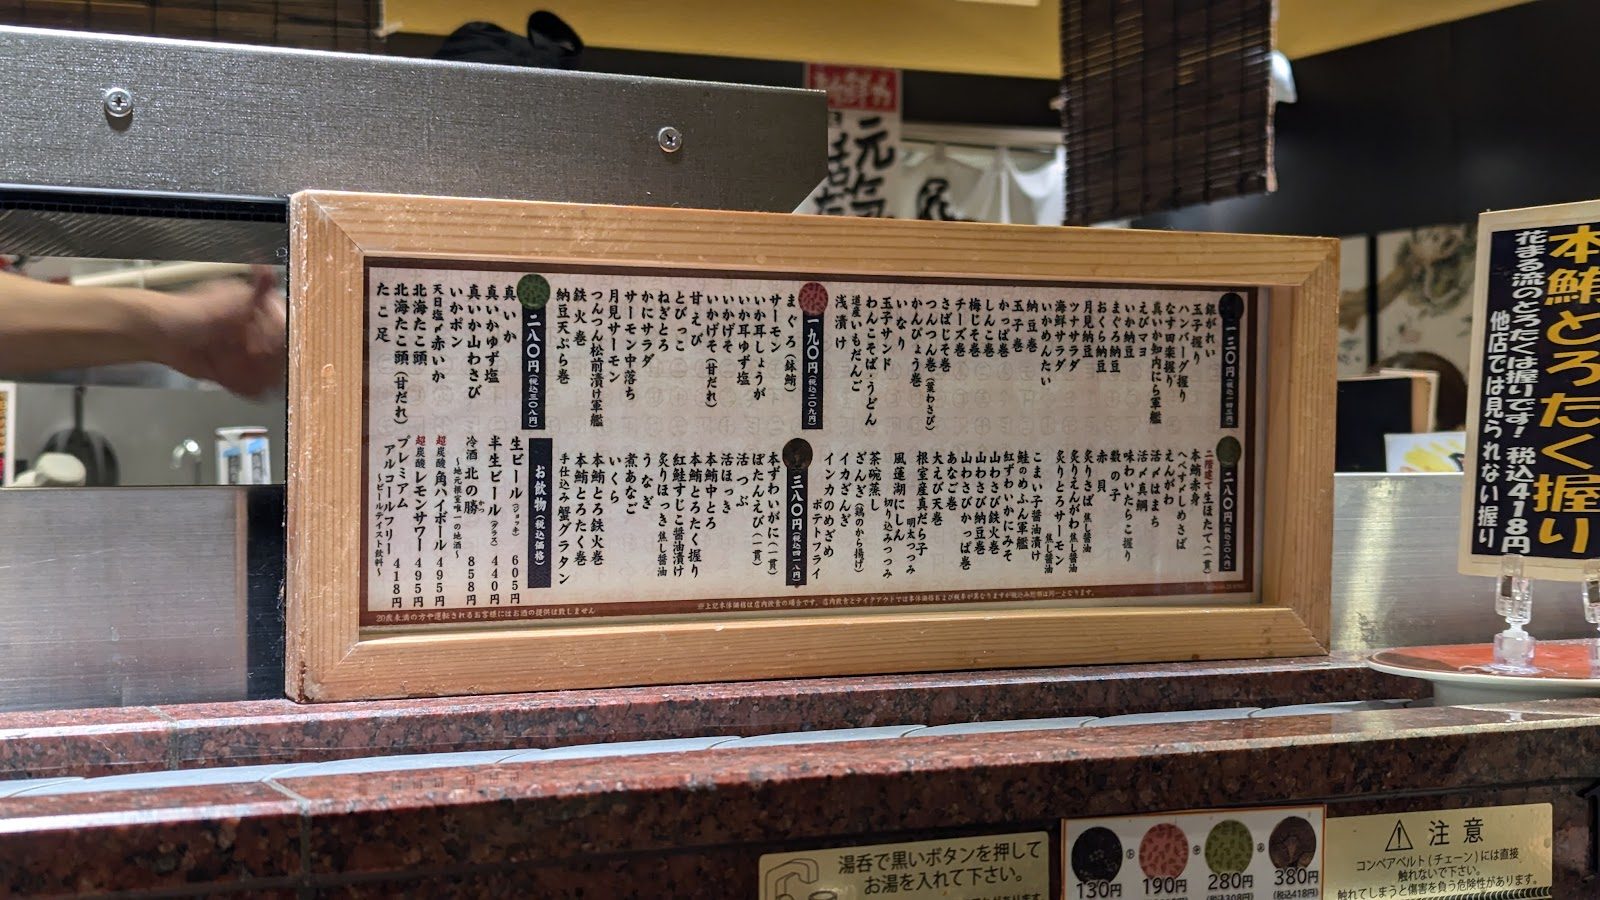 一三〇円(税込一四三円)
銀がれい
玉子握り
ハンバーグ握り
なす田楽握り
真いか知内にら軍艦
えびマヨ
いか納豆
まぐろ納豆
おくら納豆
月見納豆
ツナサラダ
海鮮サラダ
いかめんたい
納豆巻
玉子巻
かっぱ巻
しんこ巻
梅じそ巻
チーズ巻
さばじそ巻
つんつん巻(茎わさび)
かんぴょう巻
いなり
玉子サンド
わんこそば・うどん
道産いもだんご
浅漬け
一九〇円(税込二〇九円)
まぐろ(鉢鮪)
サーモン
いか耳しょうが
いか耳ゆず塩
いかげそ
いかげそ(甘だれ)
甘えび
とびっこ
ねぎとろ
かにサラダ
サーモン中落ち
月見サーモン
つんつん松前漬け軍艦
鉄火巻
納豆天ぷら巻
二八〇円(税込三〇八円)
真いか
真いかゆず塩
真いか山わさび
いかポン
天日塩〆赤いか
北海たこ頭
北海たこ頭(甘だれ)
たこ足
二八〇円(税込三〇八円)
二階建て生ほたて(一貫)
本鮪赤身
へべすしめさば
えんがわ
活〆はまち
活〆真鯛
味わいたらこ握り
数の子
赤貝
炙りさば 焦し醤油
炙りえんがわ 焦し醤油
炙りとろサーモン
こまい子醤油漬け
鮭のめふん軍艦
紅ずわいかにみそ
山わさび鉄火巻
山わさび納豆巻
山わさびかっぱ巻
あなご巻
大えび天巻
根室産真だら子
明太つつみ
風蓮湖にしん
切り込みつつみ
茶碗蒸し
ざんぎ(鶏のから揚げ)
イカざんぎ
インカのめざめ
ポテトフライ
三八〇円(税込四一八円)
本ずわいがに(一貫)
ぼたんえび(一貫)
活つぶ
活ほっき
本鮪中とろ
本鮪とろたく握り
紅鮭すじこ醤油漬け
炙りほっき 焦し醤油
うなぎ
煮あなご
いくら
本鮪とろ鉄火巻
本鮪とろたく巻
手仕込み蟹グラタン
お飲物(税込価格)
生ビール(ジョッキ) 605円
半生ビール(グラス) 440円
冷酒 北の勝 858円
～地元根室唯一の地酒～
超炭酸角ハイボール 495円
超炭酸レモンサワー 495円
プレミアム
アルコールフリー 418円
～ビールテイスト飲料～
※上記本体価格は店内飲食の場合です。店内飲食とテイクアウトでは本体価格および税率が異なりますが税込み価格は同一となります。
20歳未満の方や運転されるお客様にはお酒の提供は致しません
本鮪とろたく握り
花まる流のとろたくは握りです! 税込418円
他店では見られない握り
湯呑で黒いボタンを押して
お湯を入れて下さい。
130円
190円
280円
380円
(税込418円)
注意
コンベアベルト(チェーン)には直接
触れないで下さい。
触れてしまうと傷害を負う危険性があります。